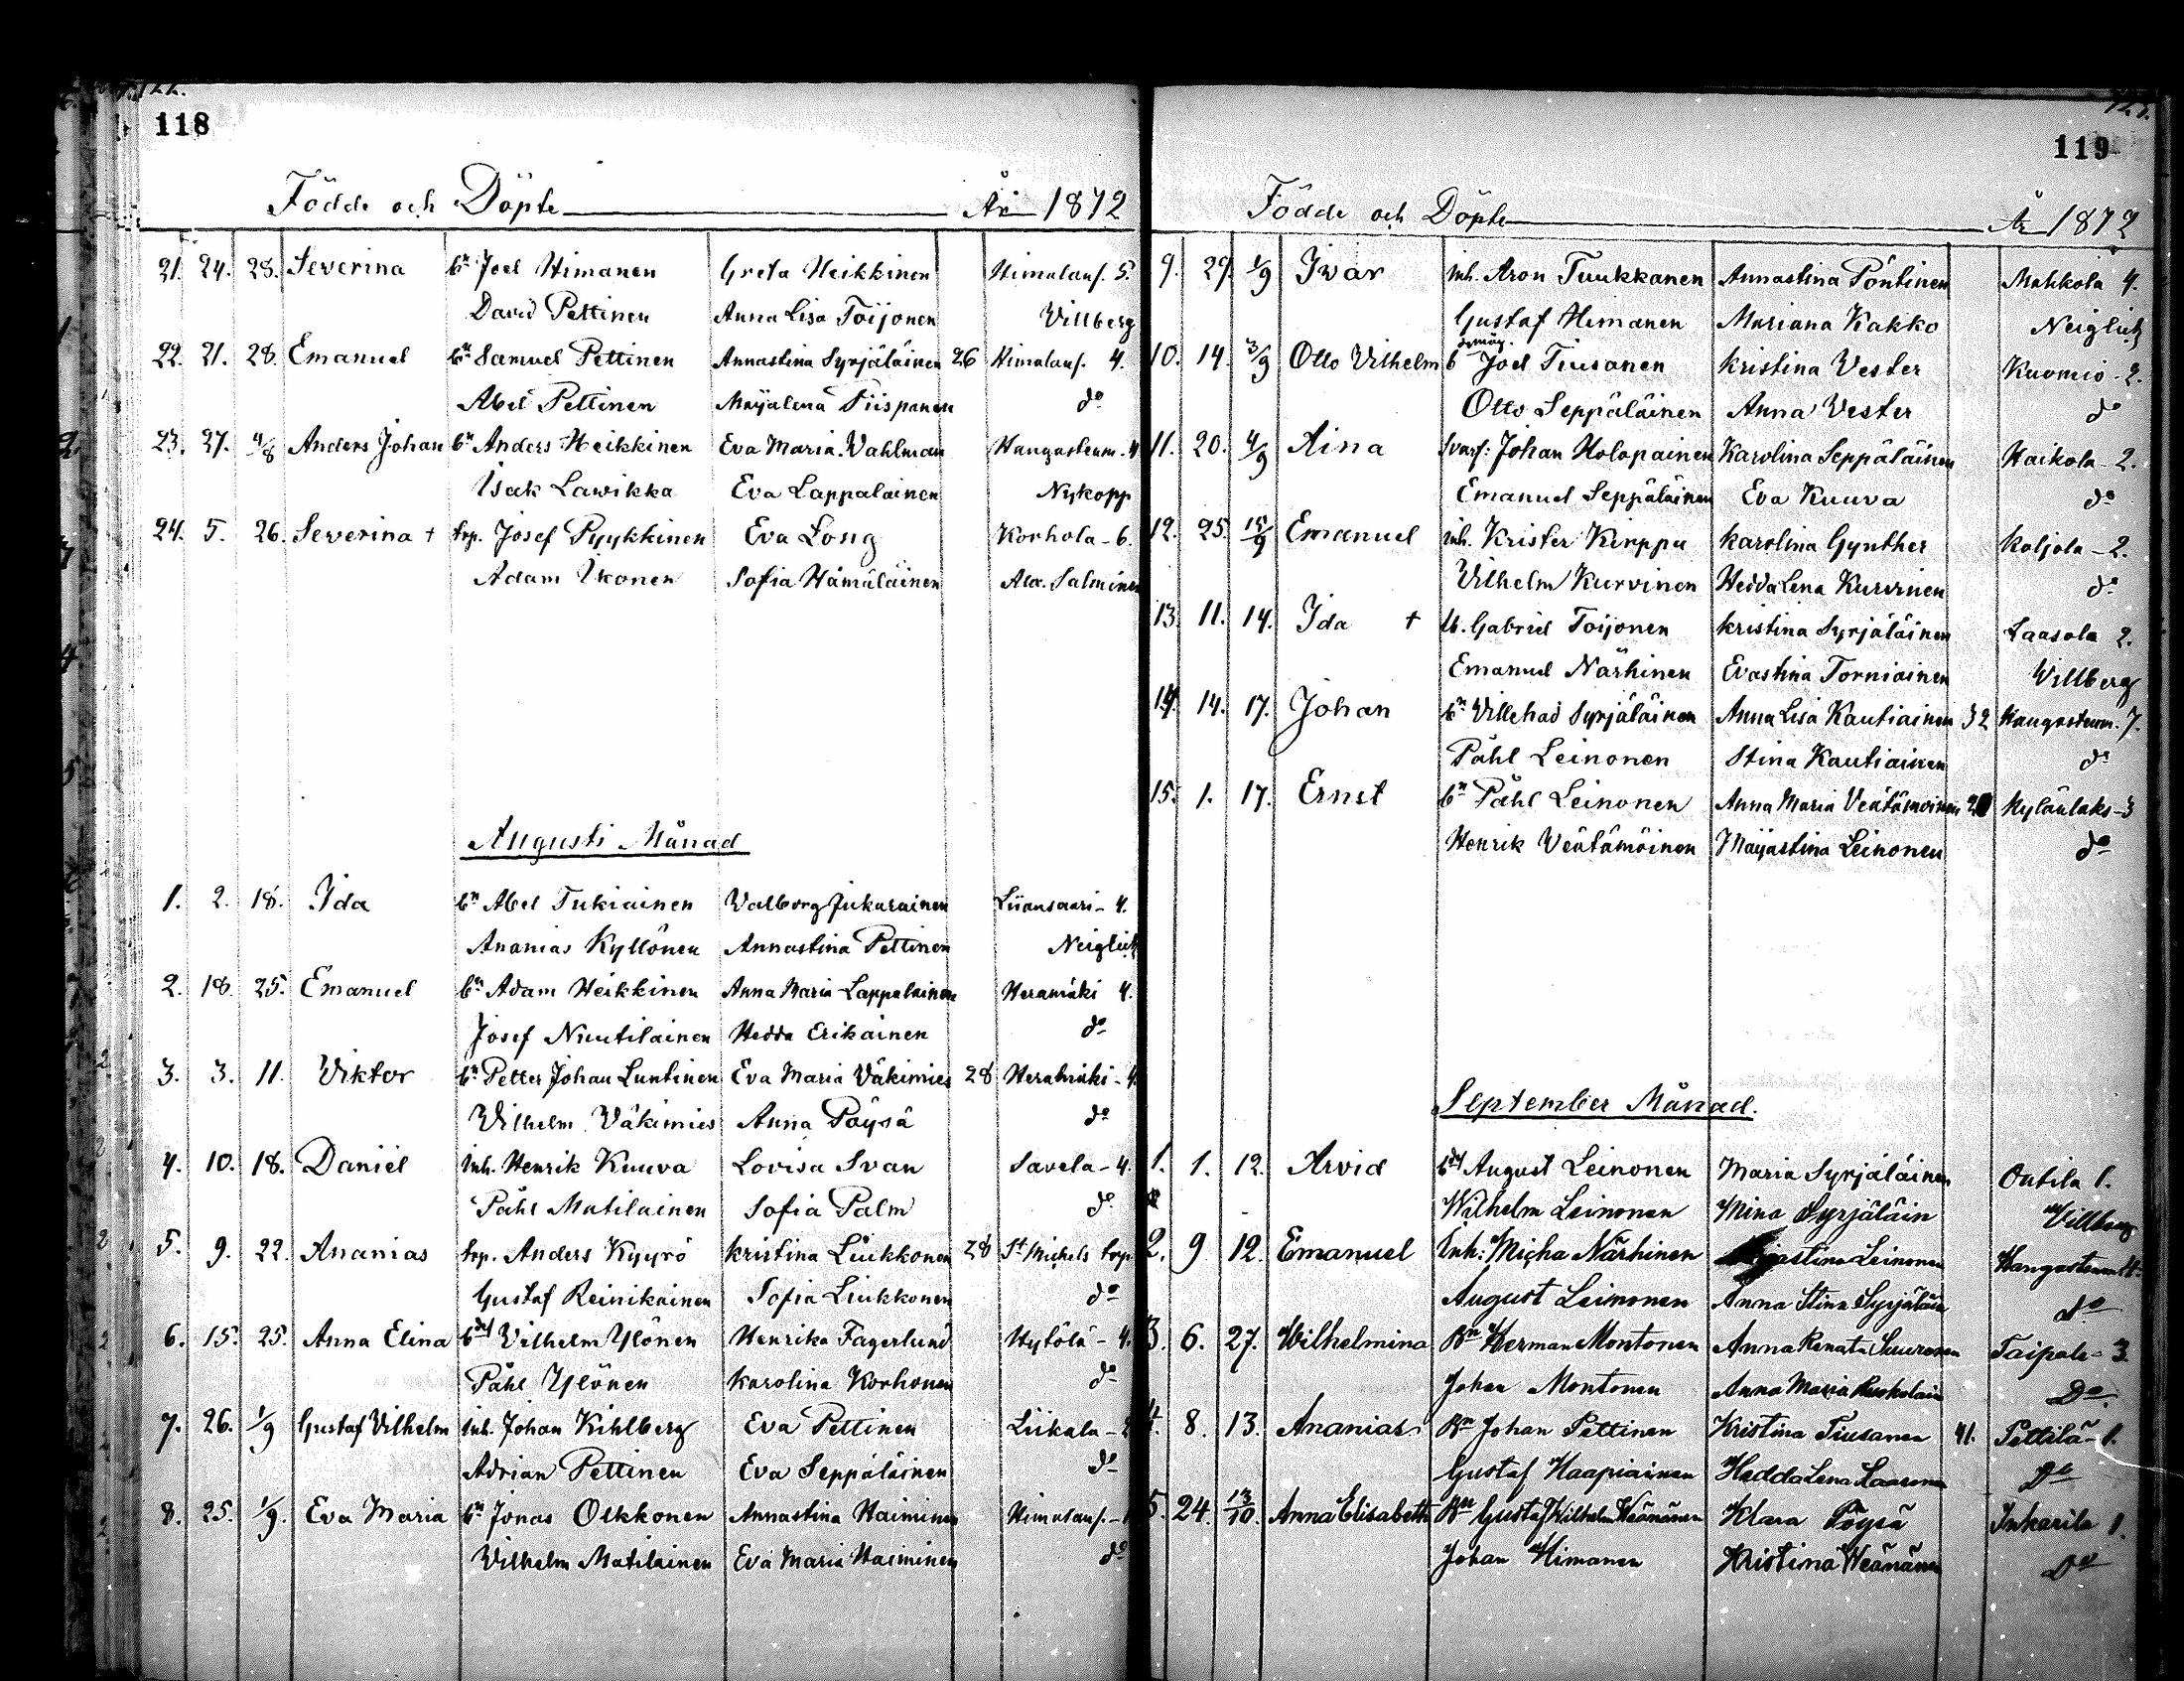 118
Födde och Döpte År 1872
21. 24. 28. Severina bn Joel Himanen Greta Heikkinen Himalans. 5.
David Pettinen Anna Lisa Toijonen Villberg
22. 21. 28. Emanuel bn Samuel Pettinen Annastina Syrjäläinen 26 Himalans. 4.
Abel Pettinen Majalena Tiispanen do
23. 27. 4/8 Anders Johan bn Anders Heikkinen Eva Maria Vahlman Hangasteum. 4
Isak Lavikka Eva Lappalainen Nykopp
24. 5. 26. Severina † trp. Josef Pyykkinen Eva Long Korhola - 6.
Adam Ikonen Sofia Hämäläinen Alex. Salminen
Augusti Månad
1. 2. 18. Ida bn Abel Tukiainen Valborg Jukarainen Liiansaari - 4.
Ananias Kyllönen Annastina Pettinen Neiglick
2. 18. 25. Emanuel bn Adam Heikkinen Anna Maria Lappalainen Heramäki 4.
Josef Nuutilainen Hedda Erikainen do
3. 3. 11. Viktor bn Petter Johan Luntinen Eva Maria Väkimies 28 Heramäki - 4.
Vilhelm Väkimies Anna Pöysä do
4. 10. 18. Daniel inh. Henrik Kuuva Lovisa Svan Savela - 4.
Påhl Matilainen Sofia Palm do
5. 9. 22. Ananias trp. Anders Kyyrö Kristina Liukkonen 28 St Michels trp
Gustaf Reinikainen Sofia Liukkonen do
6. 15. 25. Anna Elina Vilhelm Ylönen Henrika Fagerlund Hytölä - 4.
Påhl Ylönen Karolina Korhonen do
7. 26. 1/9 Gustaf Vilhelm inh. Johan Kihlberg Eva Pettinen Liikala - 2
Adrian Pettinen Eva Seppäläinen do
8. 25. 1/9. Eva Maria bn Jonas Olkkonen Annastina Haiminen Himalans. -
Vilhelm Matilainen Eva Maria Haiminen do
119
Födde och Döpte År 1872
9. 29. 1/9 Ivar inh. Aron Tuukkanen Annastina Pöntinen Mahkola 4.
Gustaf Himanen Mariana Kakko Neiglick
10. 14. 3/9 Otto Vilhelm b måg. Joel Tiusanen Kristina Vester Kuomio - 2.
Otto Seppäläinen Anna Vester do
11. 20. 4/9 Aina Svarf: Johan Holopainen Karolina Seppäläinen Haikola - 2.
Emanuel Seppäläinen Eva Kuuva do
12. 25. 15/9 Emanuel inh. Krister Kirppu Karolina Gynther Koljola - 2.
Vilhelm Kurvinen Hedda Lena Kurvinen do
13. 11. 14. Ida † Gabriel Toijonen Kristina Syrjäläinen Laasola 2.
Emanuel Närhinen Evastina Torniainen Villberg
14. 14. 17. Johan bn Villehad Syrjäläinen Anna Lisa Kautiainen 32 Hangasteum. 7.
Påhl Leinonen Stina Kautiainen do
15. 1. 17. Ernst bn Påhl Leinonen Anna Maria Veätämöinen Kyläulaks - 3
Henrik Veätämöinen Majastina Leinonen do
September Månad.
1. 1. 12. Arvid August Leinonen Maria Syrjäläinen Outila 1.
Wilhelm Leinonen Mina Syrjäläin Villberg
2. 9 12. Emanuel Inh: Micha Närhinen Leinonen Hangasteum 4.
August Leinonen Anna Stina Syrjäläin do
3. 6. 27. Wilhelmina Bn Herman Montonen Anna Renata Suuronen Taipale - 3.
Johan Montonen Anna Maria Ruokolain Do.
4. 8. 13. Ananias Bn Johan Pettinen Kristina Tiusanen 41. Pettilä - 1.
Gustaf Haapiainen Hedda Lena Laasonen Do
5. 24. 13/10. Anna Elisabeth Bn Gustaf Wilhelm Weänänen Klara Pöysä Inkarila 1.
Johan Himanen Kristina Weänänen Do